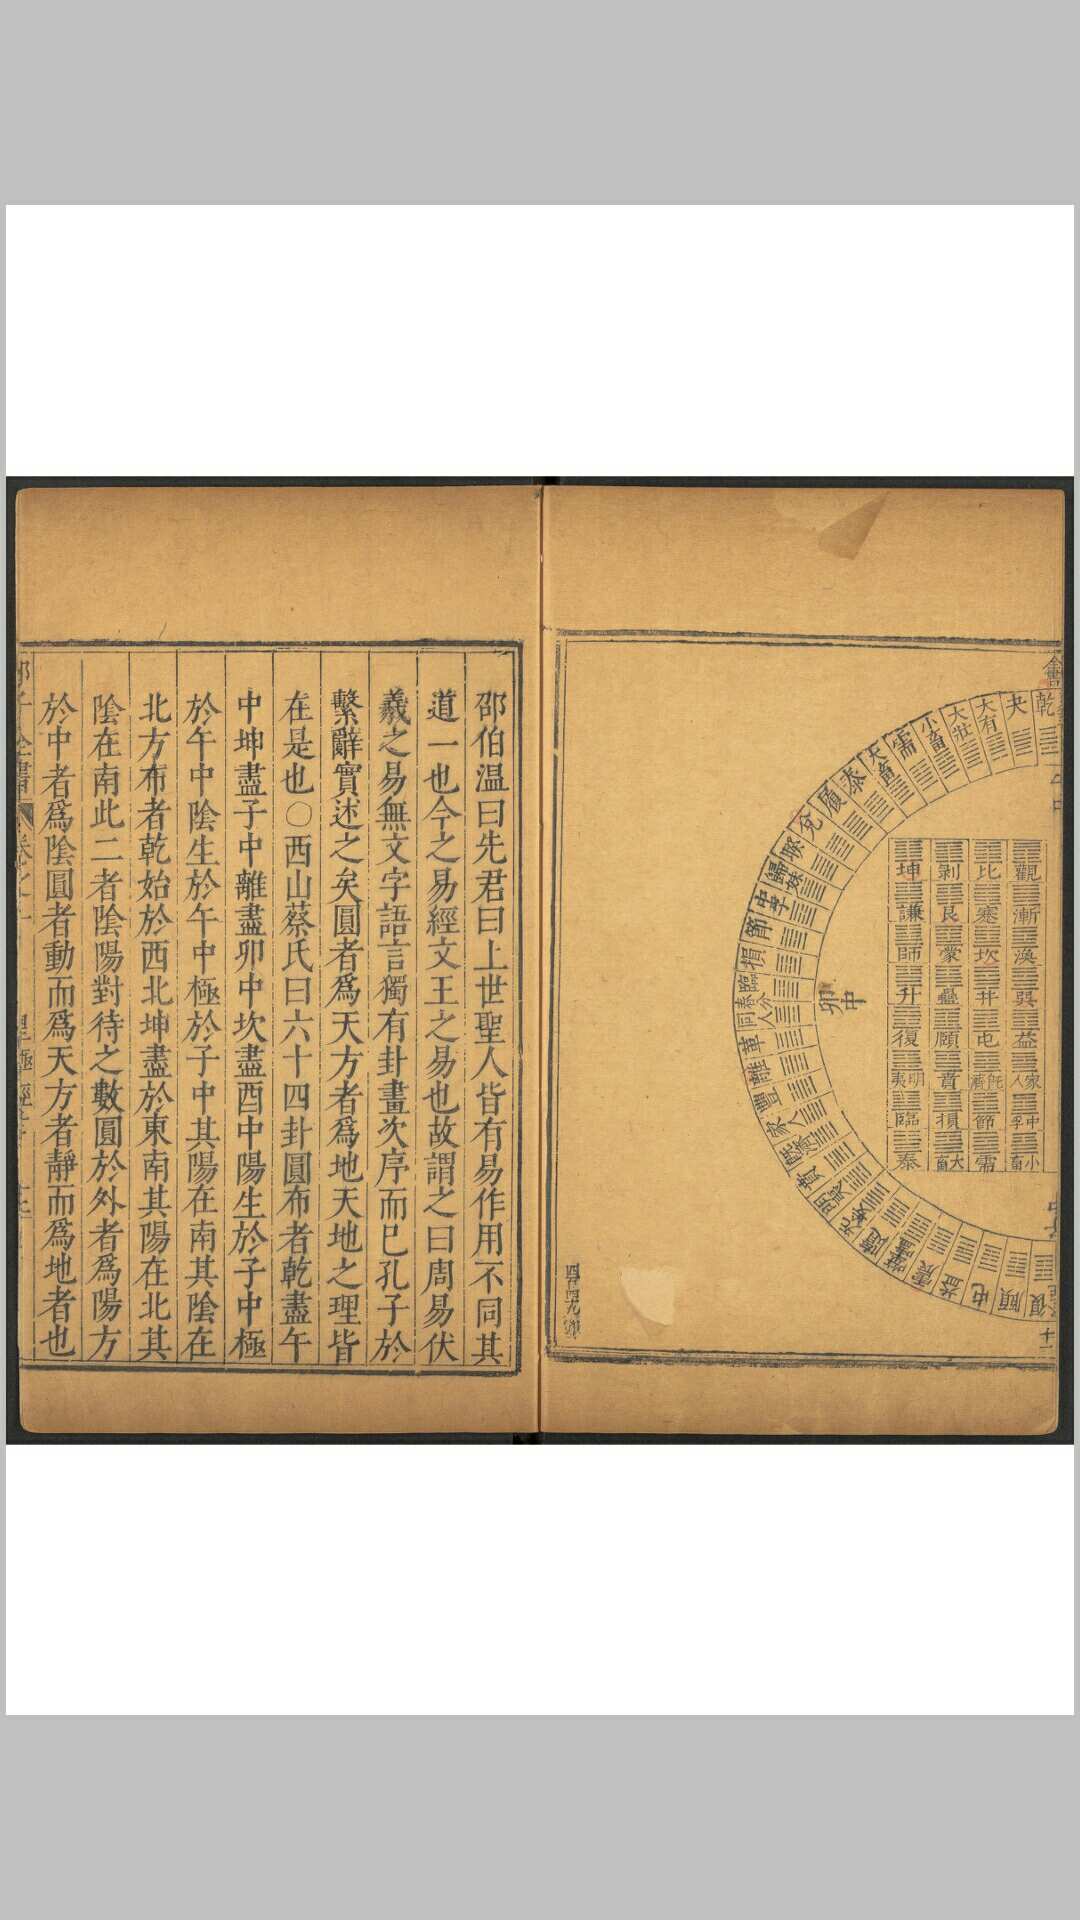 乾
夬
大有
大壯
小畜
需
大畜
泰
履
兌
睽
歸妹
中孚
節
損
臨
同人
革
離
豐
家人
既濟
賁
明夷
无妄
隨
噬嗑
震
益
屯
頤
復
卯中
觀
漸
渙
巽
益
家人
中孚
小畜
比
蹇
坎
井
屯
既濟
節
需
剝
艮
蒙
蠱
頤
賁
損
大畜
坤
謙
師
升
復
明夷
臨
泰
十一
邵伯溫曰先君曰上世聖人皆有易作用不同其
道一也今之易經文王之易也故謂之曰周易伏
羲之易無文字語言獨有卦畫次序而已孔子於
繫辭實述之矣圓者爲天方者爲地天地之理皆
在是也○西山蔡氏曰六十四卦圓布者乾盡午
中坤盡子中離盡卯中坎盡酉中陽生於子中極
於午中陰生於午中極於子中其陽在南其陰在
北方布者乾始於西北坤盡於東南其陽在北其
陰在南此二者陰陽對待之數圓於外者爲陽方
於中者爲陰圓者動而爲天方者靜而爲地者也